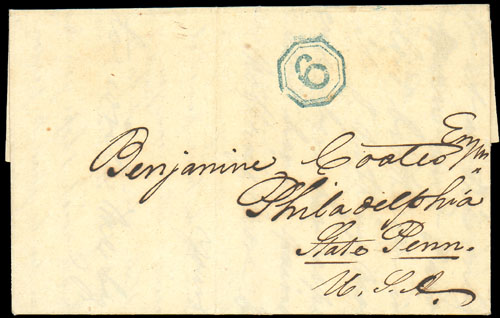 6
Benjamine Coates Esqr
Philadelphia
State Penn.
U. S. A.